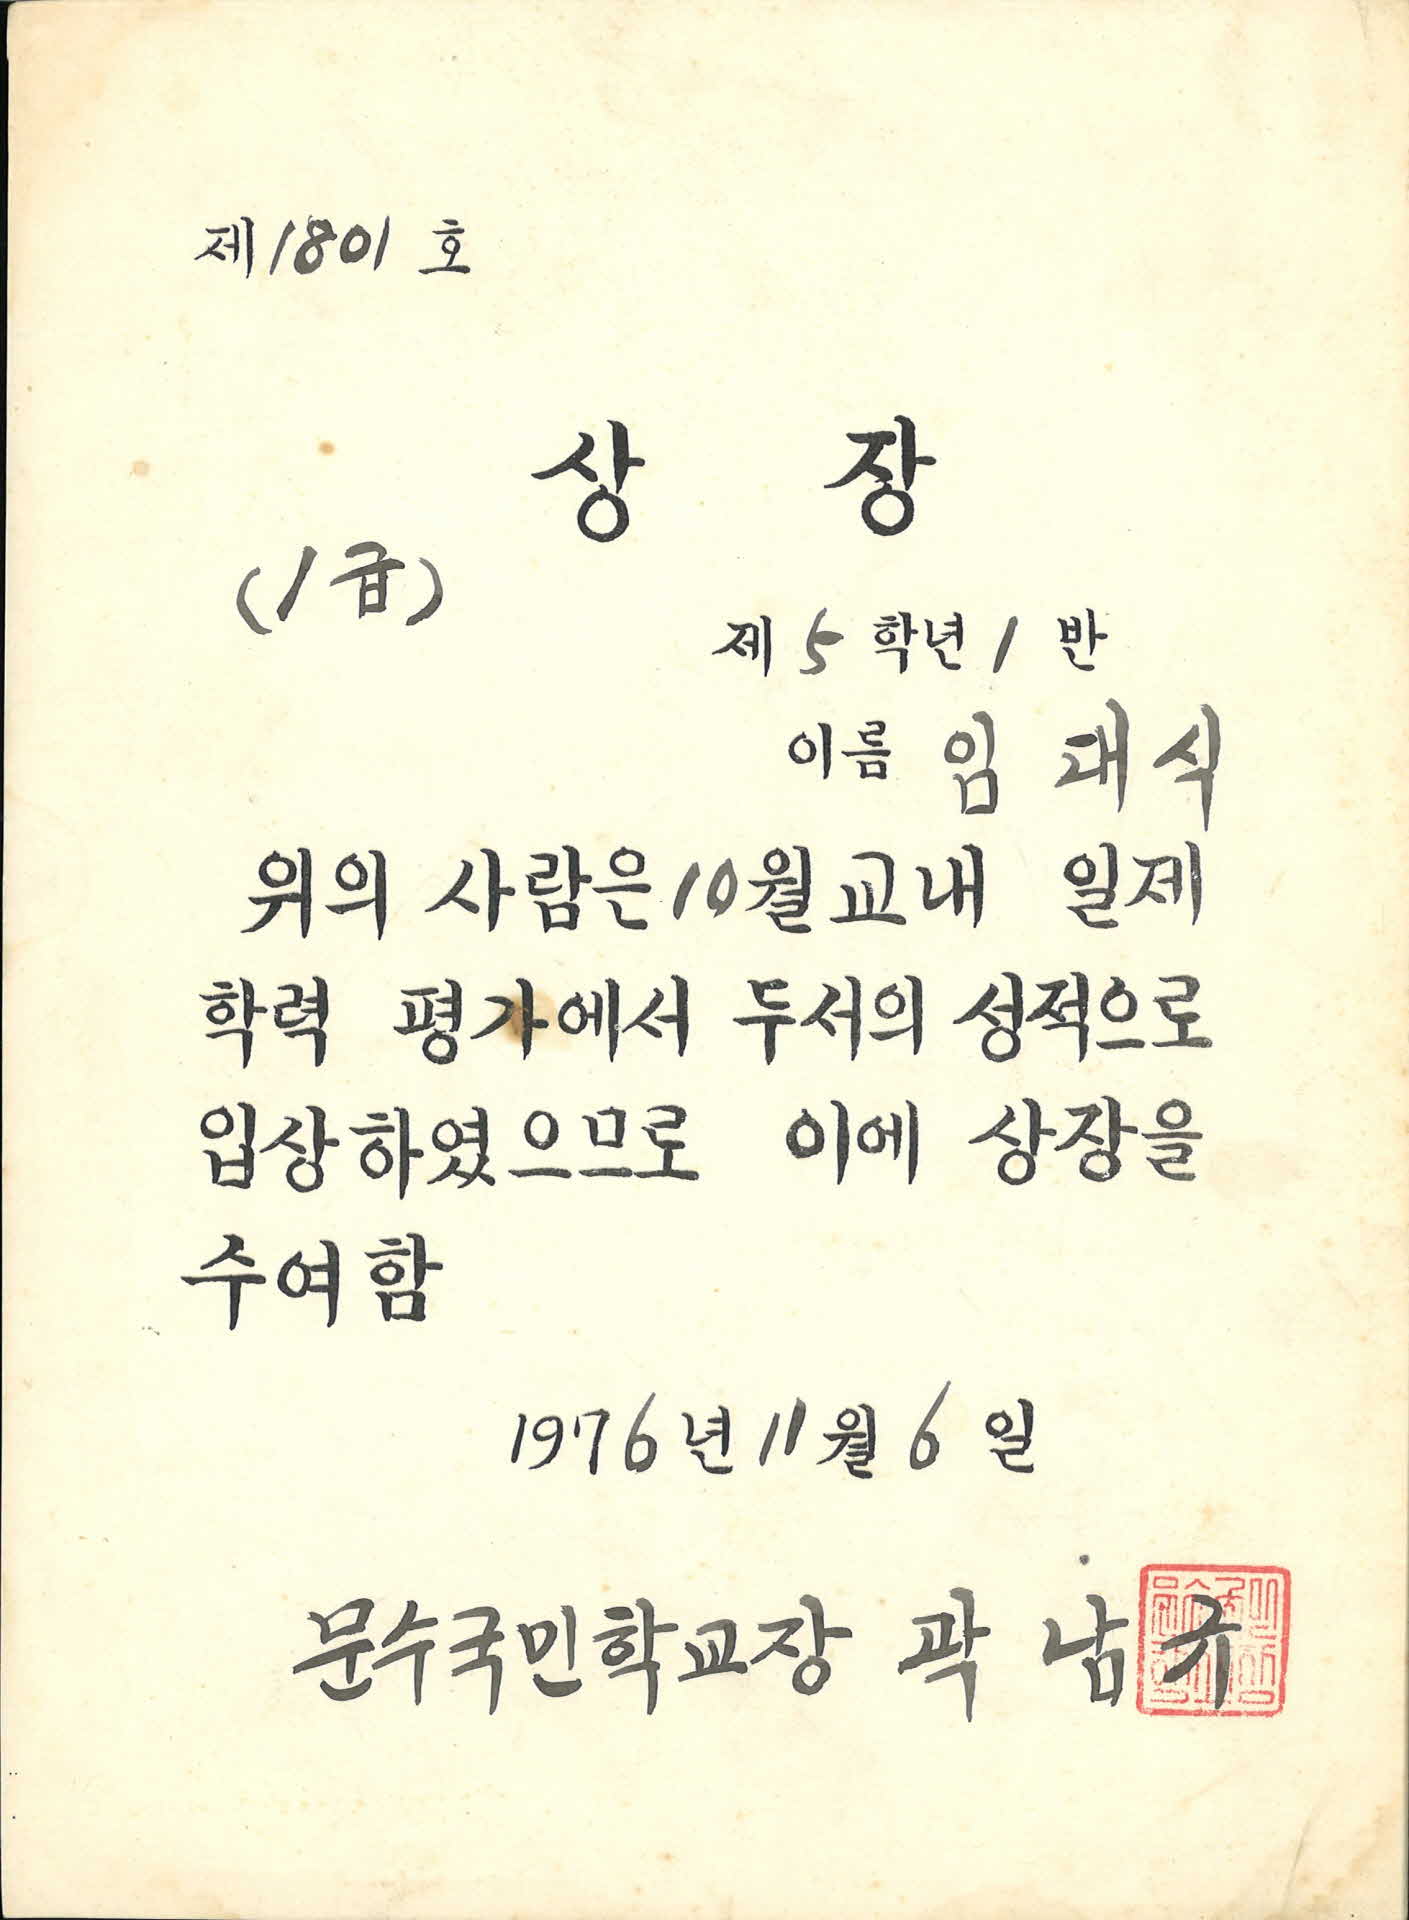 제1801 호
상 장
(1급)
제 5 학년 1 반
이름 임 대 식
위의 사람은 10월 교내 일제
학력 평가에서 두서의 성적으로
입상하였으므로 이에 상장을
수여함
1976년 11월 6일
문수국민학교장 곽 남 규